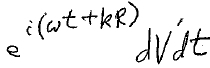 e^{i(ωt+kR)} dV'dt